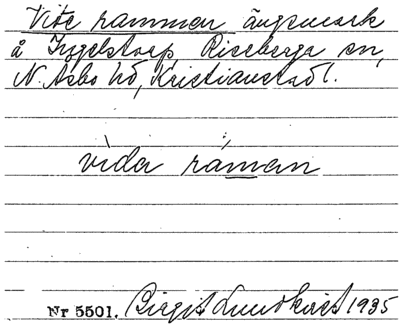 Vite rammen ängsmark
å Ingelstorp, Riseberga sn,
N. Åsbo hd, Kristianstad l.
vìda ráman
Nr 5501. Birgit Lundkvist 1935